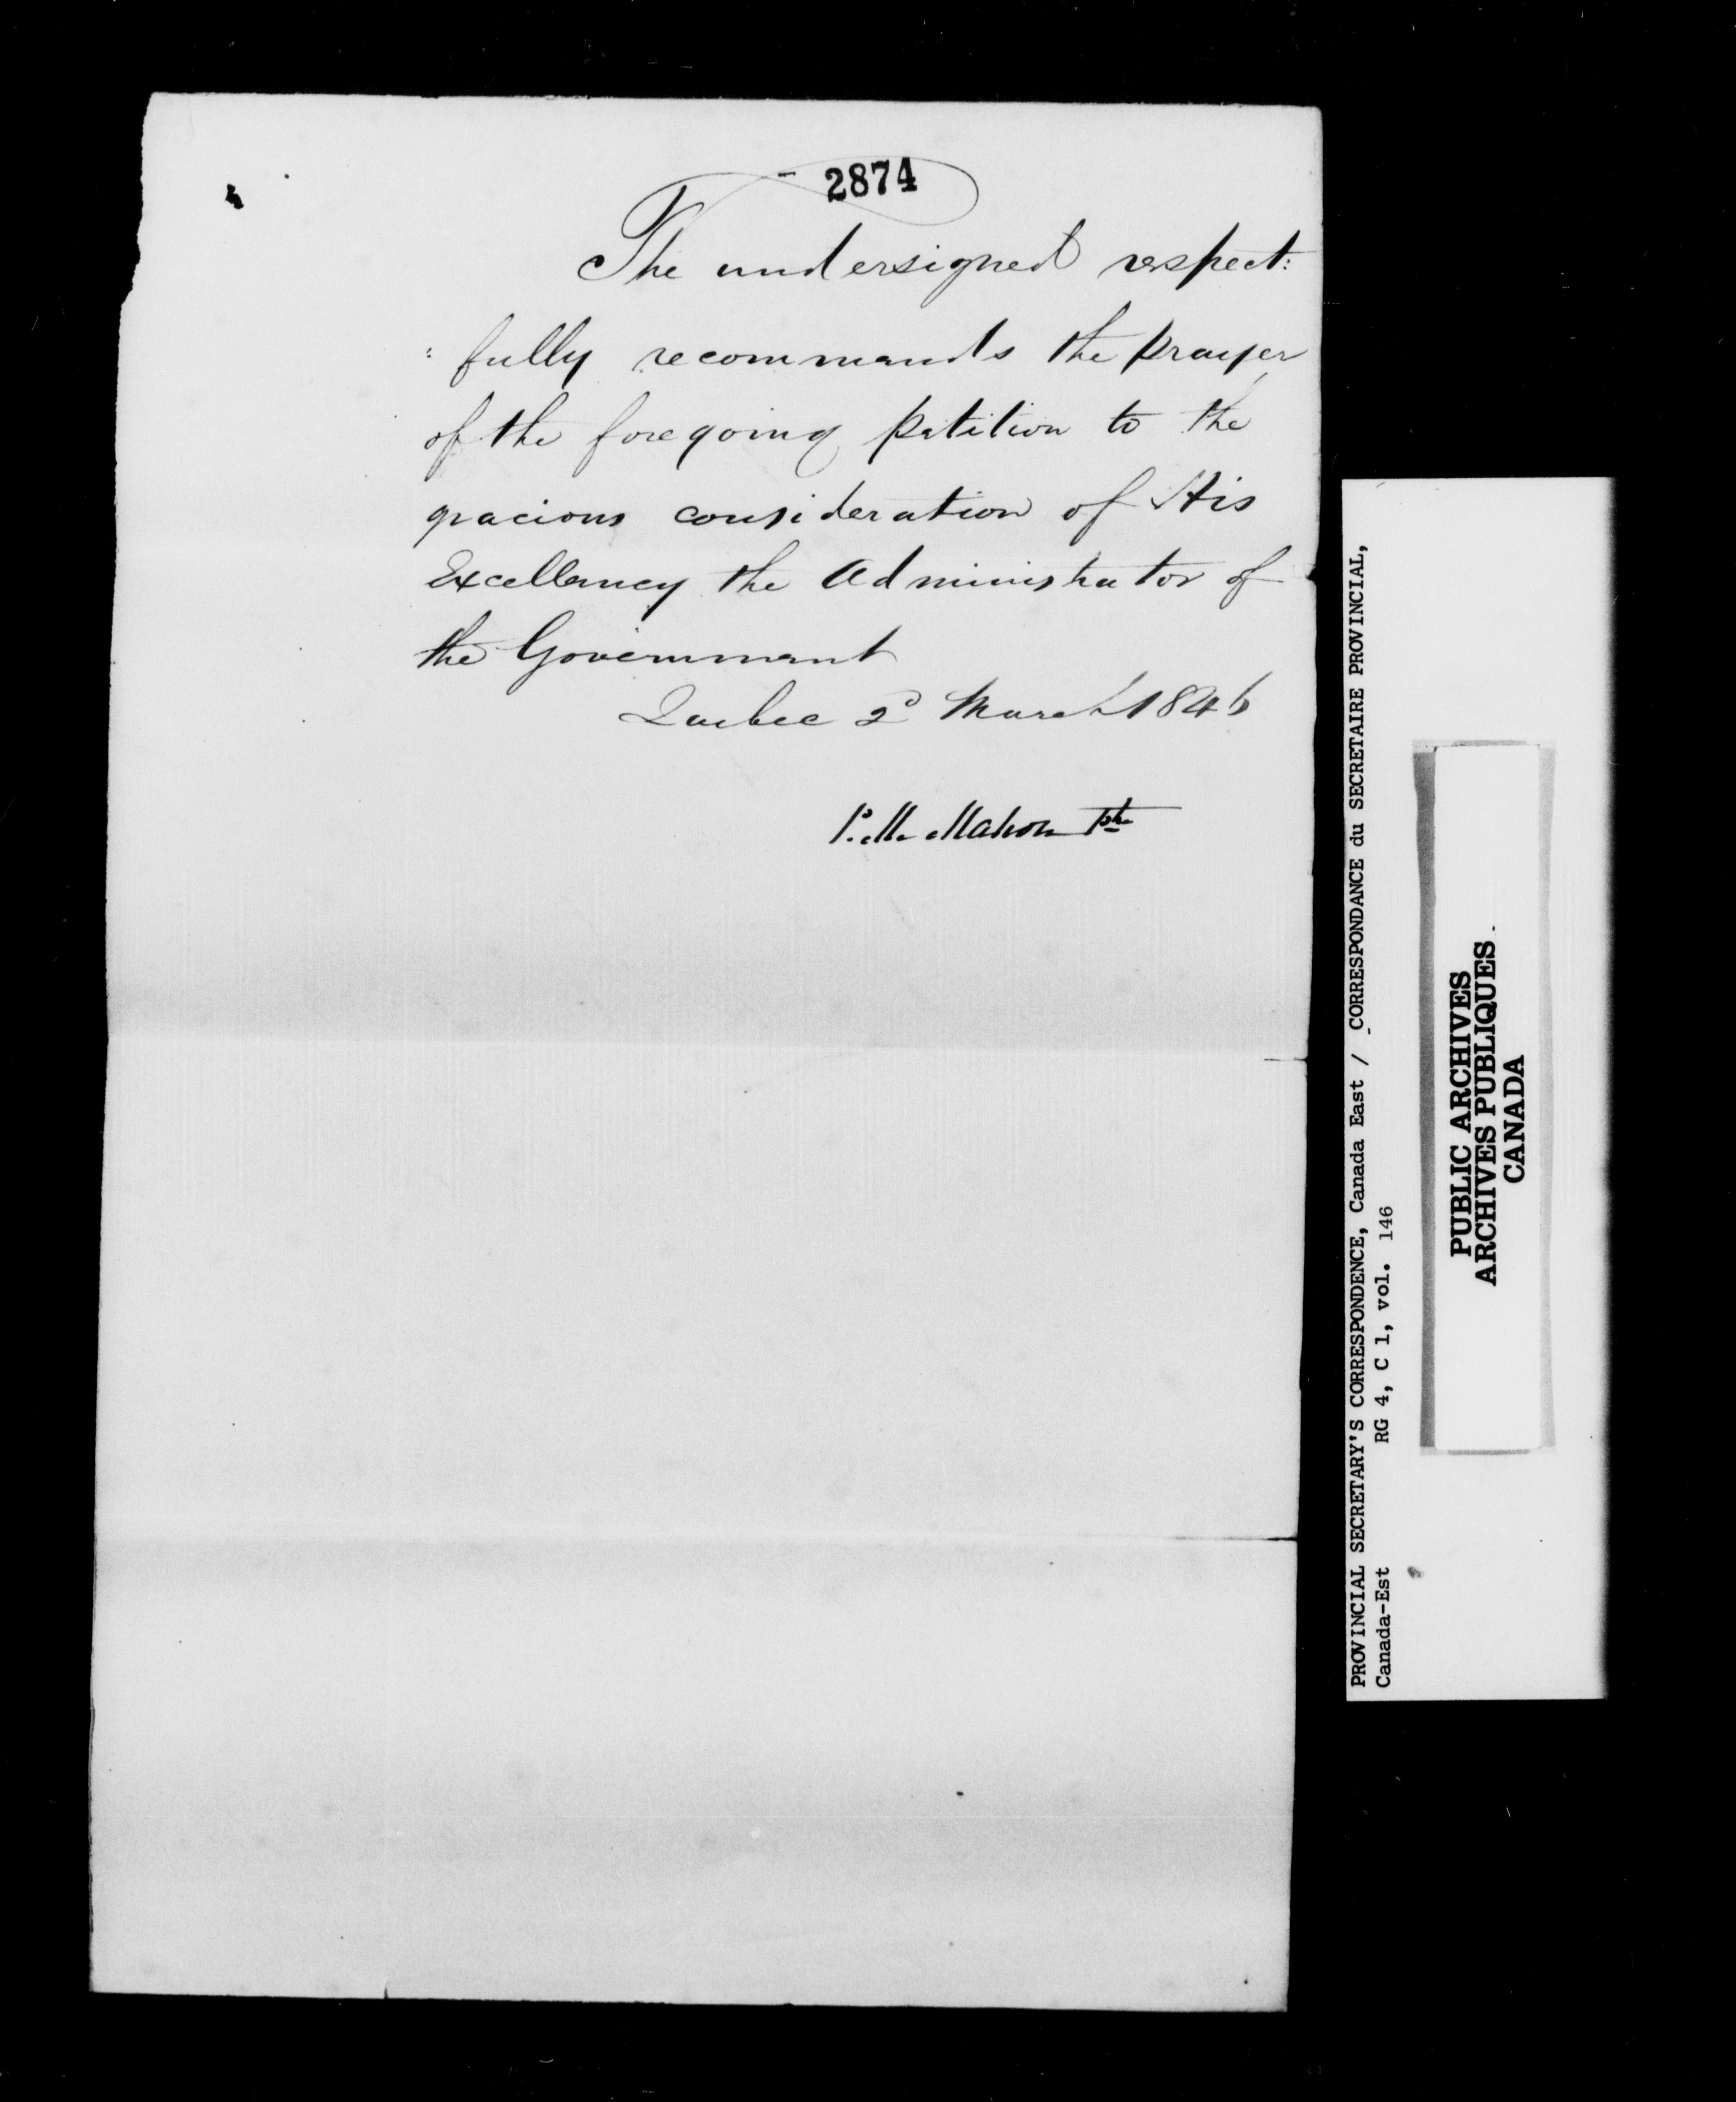 2874
The undersigned respect:
: fully recommands the prayer
of the foregoing petition to the
gracious consideration of His
Excellency the Administrator of
the Government
Quebec 2d March 1846
P. Mc Mahon Ptre
PROVINCIAL SECRETARY'S CORRESPONDENCE, Canada East / CORRESPONDANCE du SECRETAIRE PROVINCIAL,
Canada-Est RG 4, C 1, vol. 146
PUBLIC ARCHIVES
ARCHIVES PUBLIQUES
CANADA